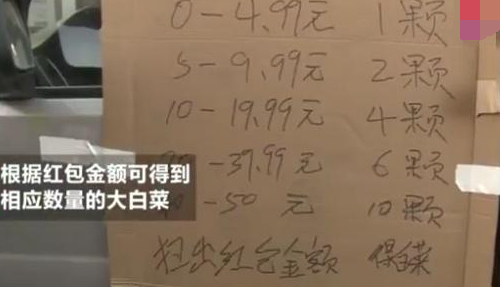 0-4.99元 1颗
5-9.99元 2颗
10-19.99元 4颗
-39.99元 6颗
根据红包金额可得到
相应数量的大白菜
0-50元 10颗
出红包金额